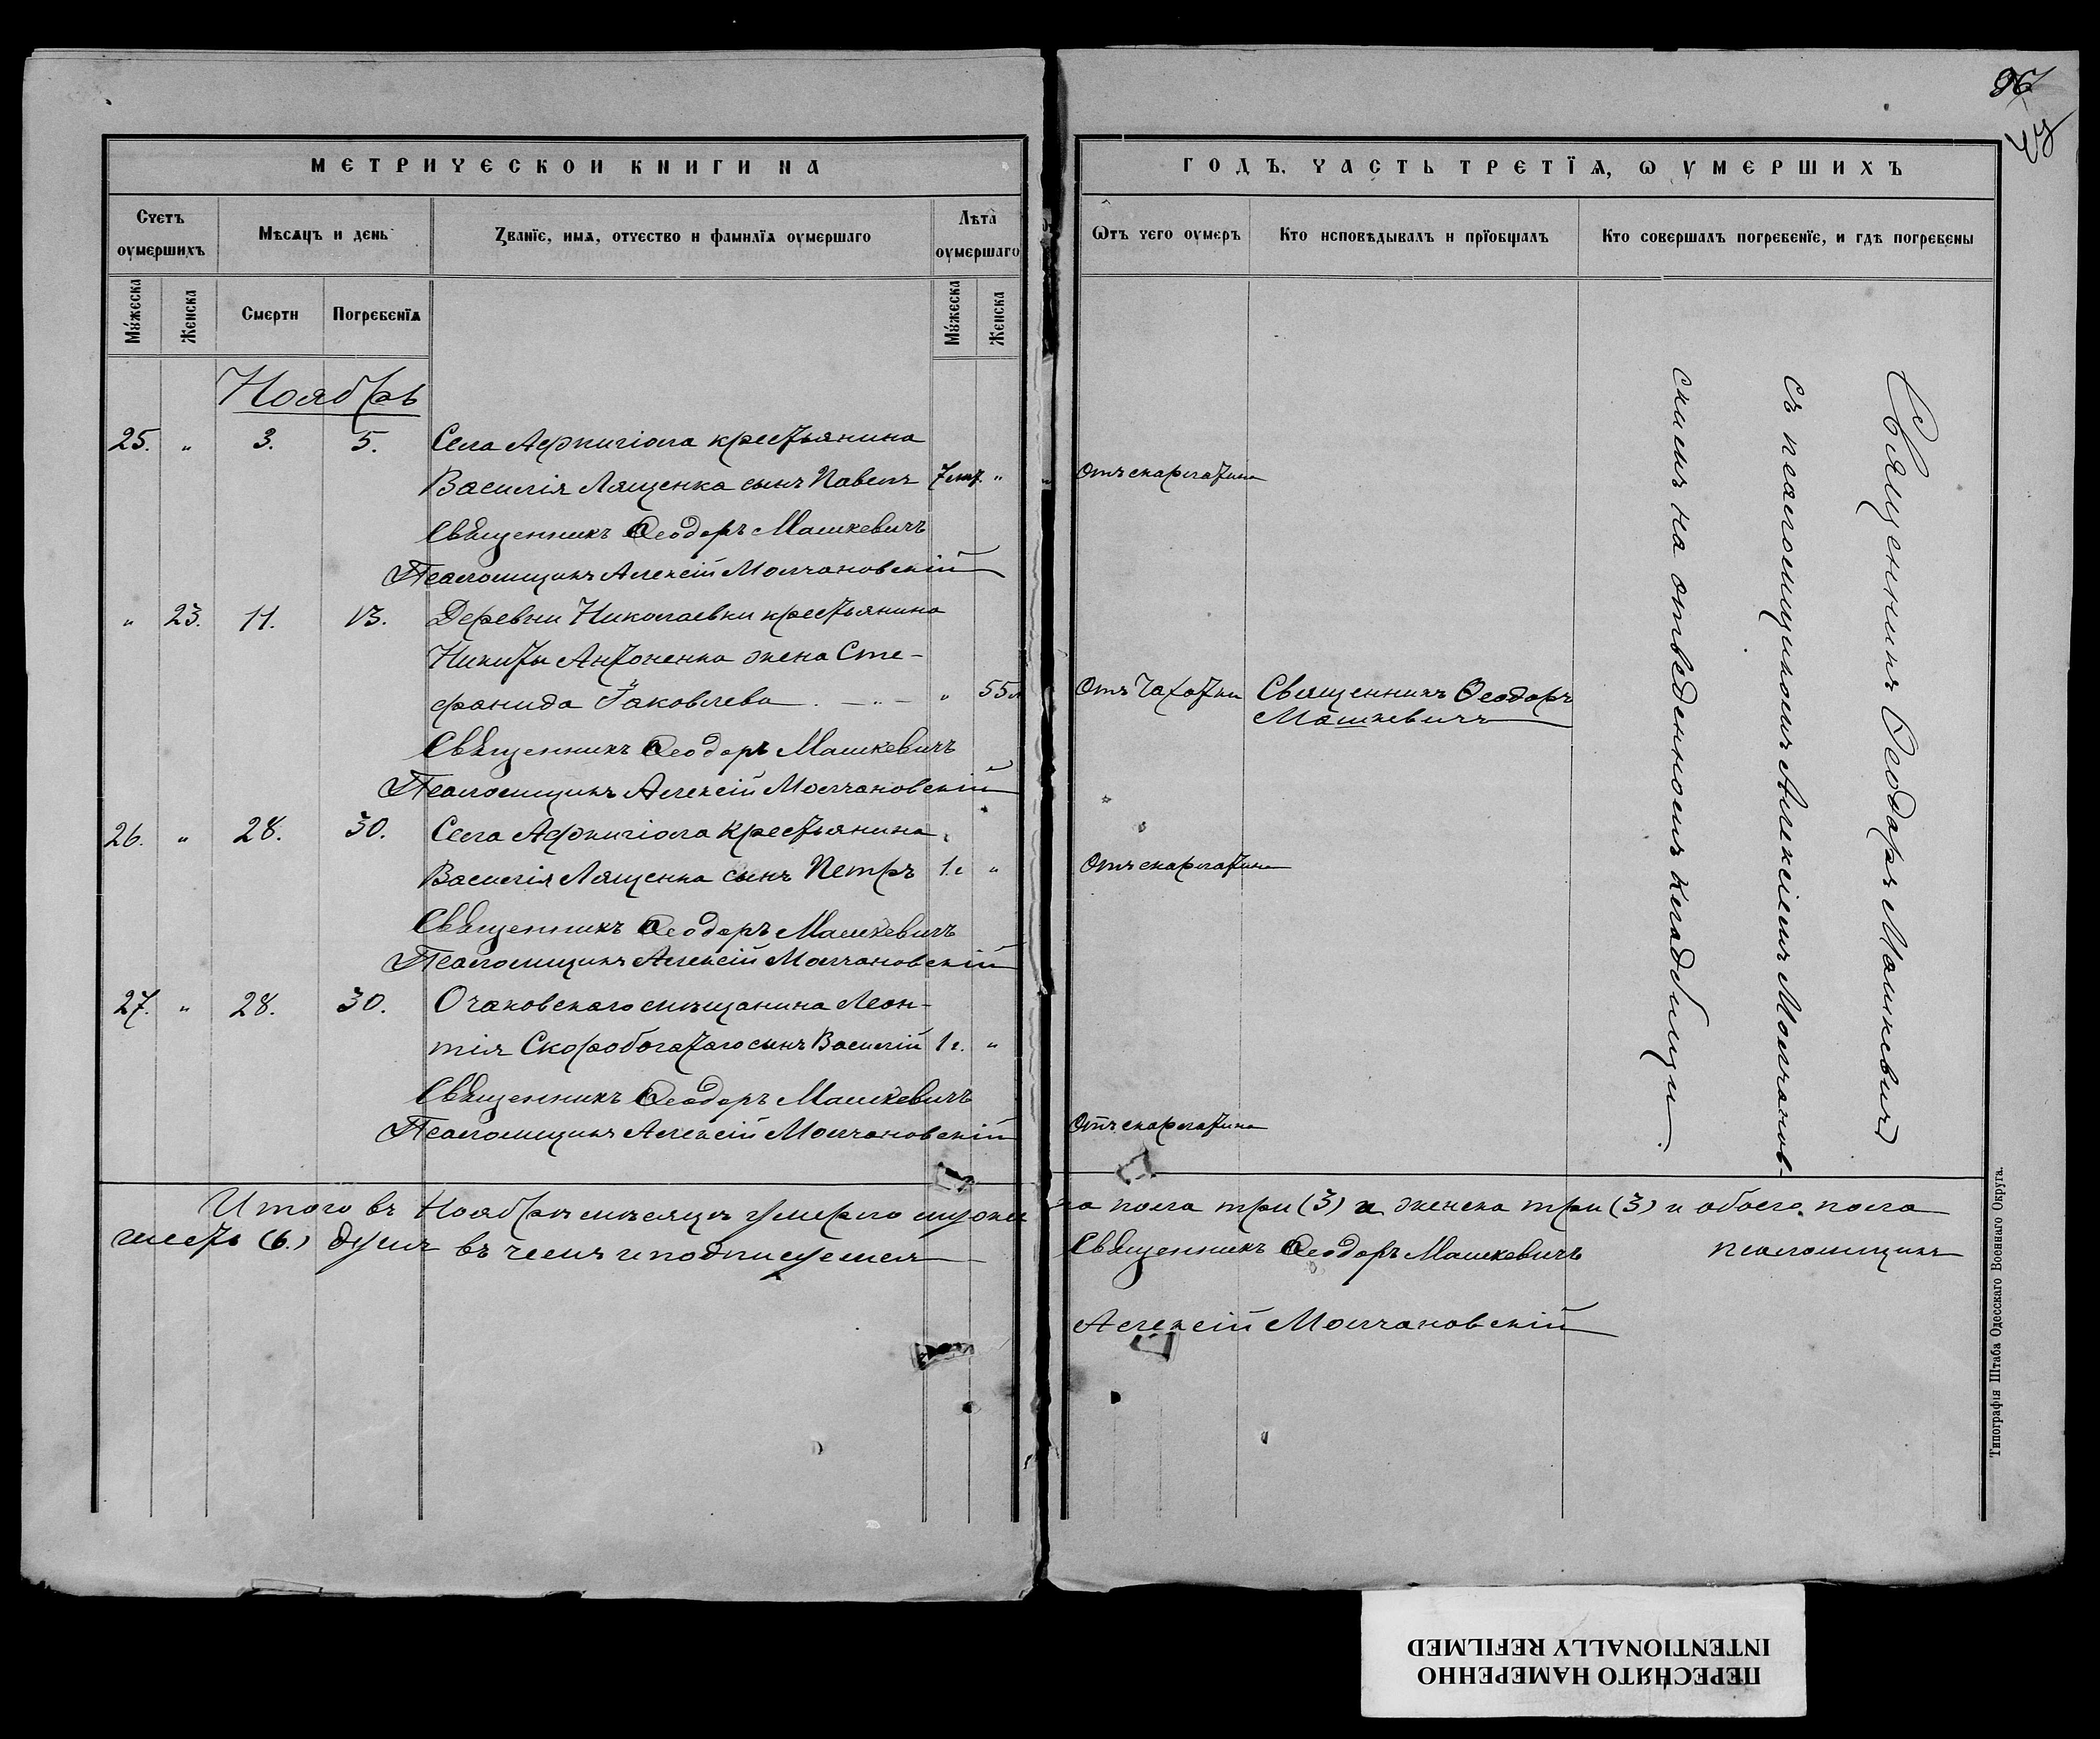 96
МЕТРИЧЕСКОИ КНИГИ НА
ГОДЪ. ЧАСТЬ ТРЕТЇѦ, Ѡ УМЕРШИХЪ
Счетъ оумершихъ
Мѣсяцъ и день
Званїе, имѧ, отчество и фамилїѧ оумершаго
Лѣта оумершаго
Ѿтъ чего оумеръ
Кто исповѣдывалъ и прїобщалъ
Кто совершалъ погребенїе, и гдѣ погребены
Мужеска
Женска
Смерти
Погребенїѧ
Мужеска
Женска
Ноябрь
25. " 3. 5. Села Аджигіола крестьянина
Василія Лященка сынъ Павелъ 7 лѣт. " Отъ скарлатина
Священникъ Ѳеодоръ Машкевичъ
Псаломщикъ Алексій Молчановскій
" 23. 11. 13. Деревни Николаевки крестьянина
Никиты Антоненка жена Сте-
фанида Іаковлева " 55 л Отъ чахотки Священникъ Ѳеодоръ
Машкевичъ
Священникъ Ѳеодоръ Машкевичъ
Псаломщикъ Алексій Молчановскій
26. " 28. 30. Села Аджигіола крестьянина
Василія Лященка сынъ Петръ 1 г. " Отъ скарлатина
Священникъ Ѳеодоръ Машкевичъ
Псаломщикъ Алексій Молчановскій
27. " 28. 30. Очаковскаго мѣщанина Леон-
тія Скоробогатаго сынъ Василій 1 г. "
Священникъ Ѳеодоръ Машкевичъ
Псаломщикъ Алексій Молчановскій Отъ скарлатина
Священникъ Ѳеодоръ Машкевичъ
съ псаломщикомъ Алексіемъ Молчанов-
скимъ на отведенномъ кладбищи.
Итого въ Ноябрѣ мѣсяцѣ умерло мужеска пола три (3) и женска три (3) и обоего пола
шесть (6.) душъ въ чемъ и подписуемся Священникъ Ѳеодоръ Машкевичъ псаломщикъ
Алексій Молчановскій
Типографія Штаба Одесскаго Военнаго Округа.
ПЕРЕСНЯТО НАМЕРЕННО
INTENTIONALLY REFILMED